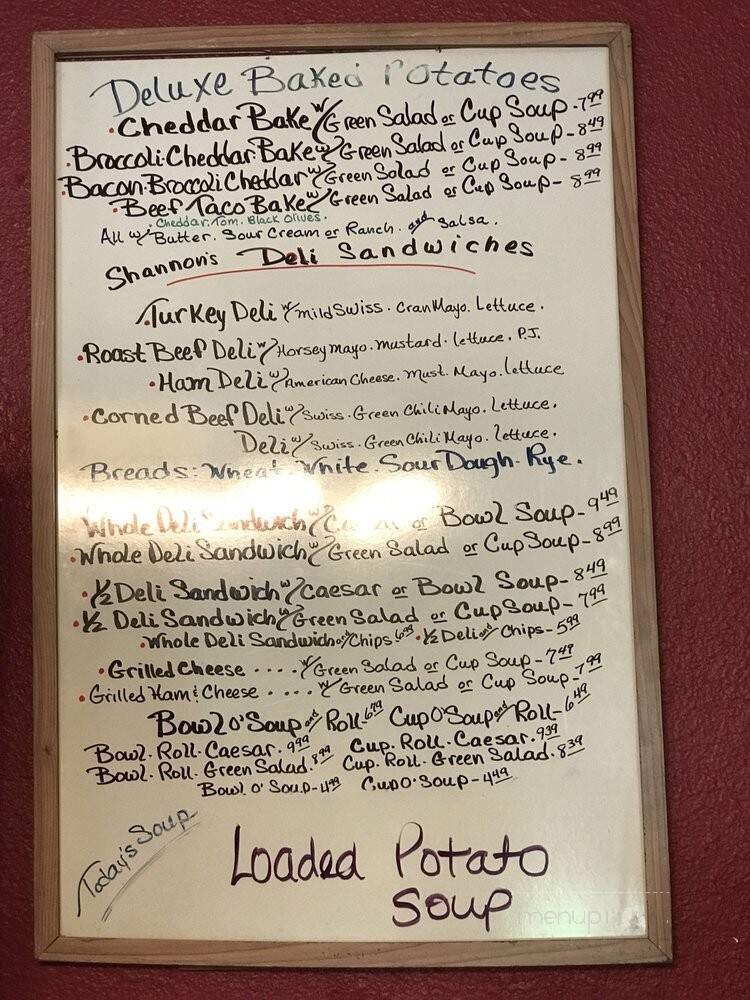 Deluxe Baked Potatoes
• Cheddar Bake w/ Green Salad or Cup Soup - 7.99
• Broccoli • Cheddar Bake w/ Green Salad or Cup Soup - 8.49
• Bacon • Broccoli Cheddar w/ Green Salad or Cup Soup - 8.99
• Beef Taco Bake w/ Green Salad or Cup Soup - 8.99
• Cheddar. Tom. Black Olives.
All w/ Butter. Sour Cream or Ranch. and Salsa.
Shannon's Deli Sandwiches
• Turkey Deli w/ mild Swiss. Cran Mayo. Lettuce.
• Roast Beef Deli w/ Horsey mayo. mustard. lettuce. P.J.
• Ham Deli w/ American Cheese. Must. Mayo. lettuce
• Corned Beef Deli w/ Swiss. Green Chili Mayo. Lettuce.
Deli w/ Swiss. Green Chili Mayo. lettuce.
Breads: Wheat. White. Sour Dough. Rye.
Whole Deli Sandwich w/ or Bowl Soup - 9.49
• Whole Deli Sandwich w/ Green Salad or Cup Soup - 8.99
• ½ Deli Sandwich w/ Caesar or Bowl Soup - 8.49
• ½ Deli Sandwich w/ Green Salad or Cup Soup - 7.99
• Whole Deli Sandwich and Chips 6.99 • ½ Deli and Chips - 5.99
• Grilled Cheese .... w/ Green Salad or Cup Soup - 7.49
• Grilled Ham & Cheese .... w/ Green Salad or Cup Soup - 7.99
Bowl O' Soup and Roll 6.79 Cup O' Soup and Roll - 6.49
Bowl. Roll. Caesar. 9.99 Cup. Roll. Caesar. 9.39
Bowl. Roll. Green Salad. 8.99 Cup. Roll. Green Salad. 8.39
Bowl O' Soup - 4.99 Cup O' Soup - 4.49
Today's Soup
Loaded Potato
Soup